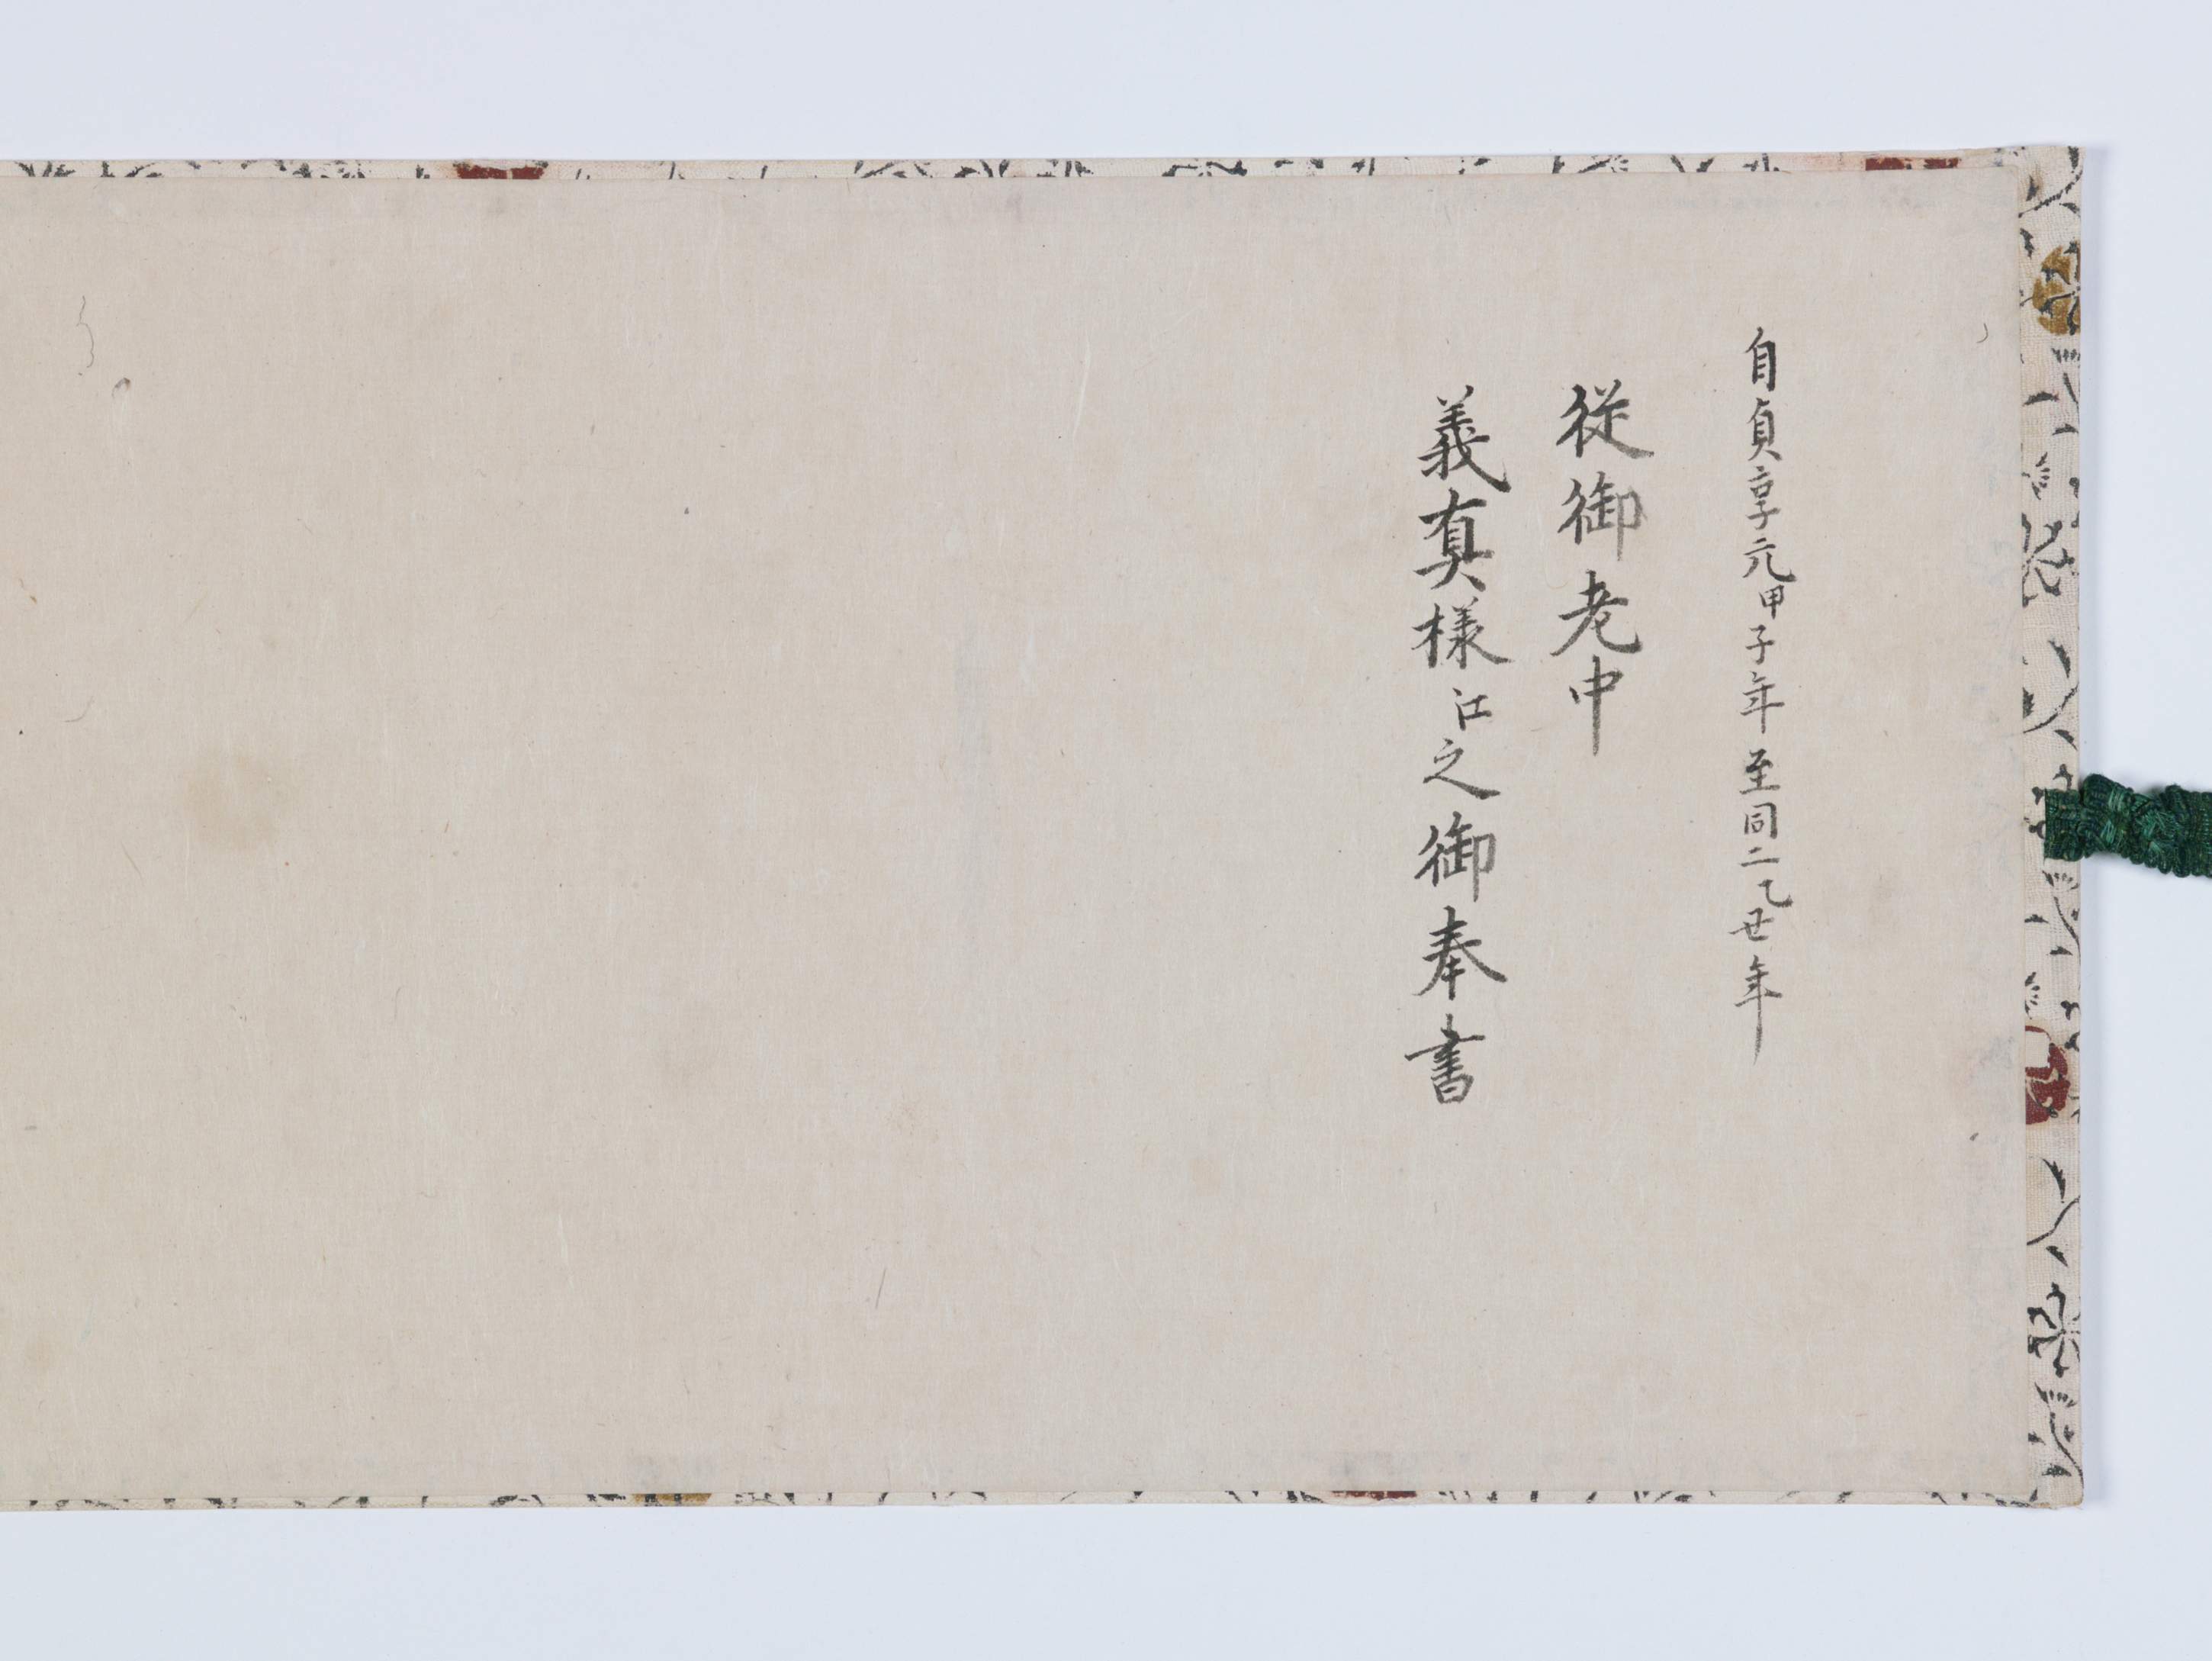 自貞享元甲子年至同二乙丑年
従御老中
義真様江之御奉書